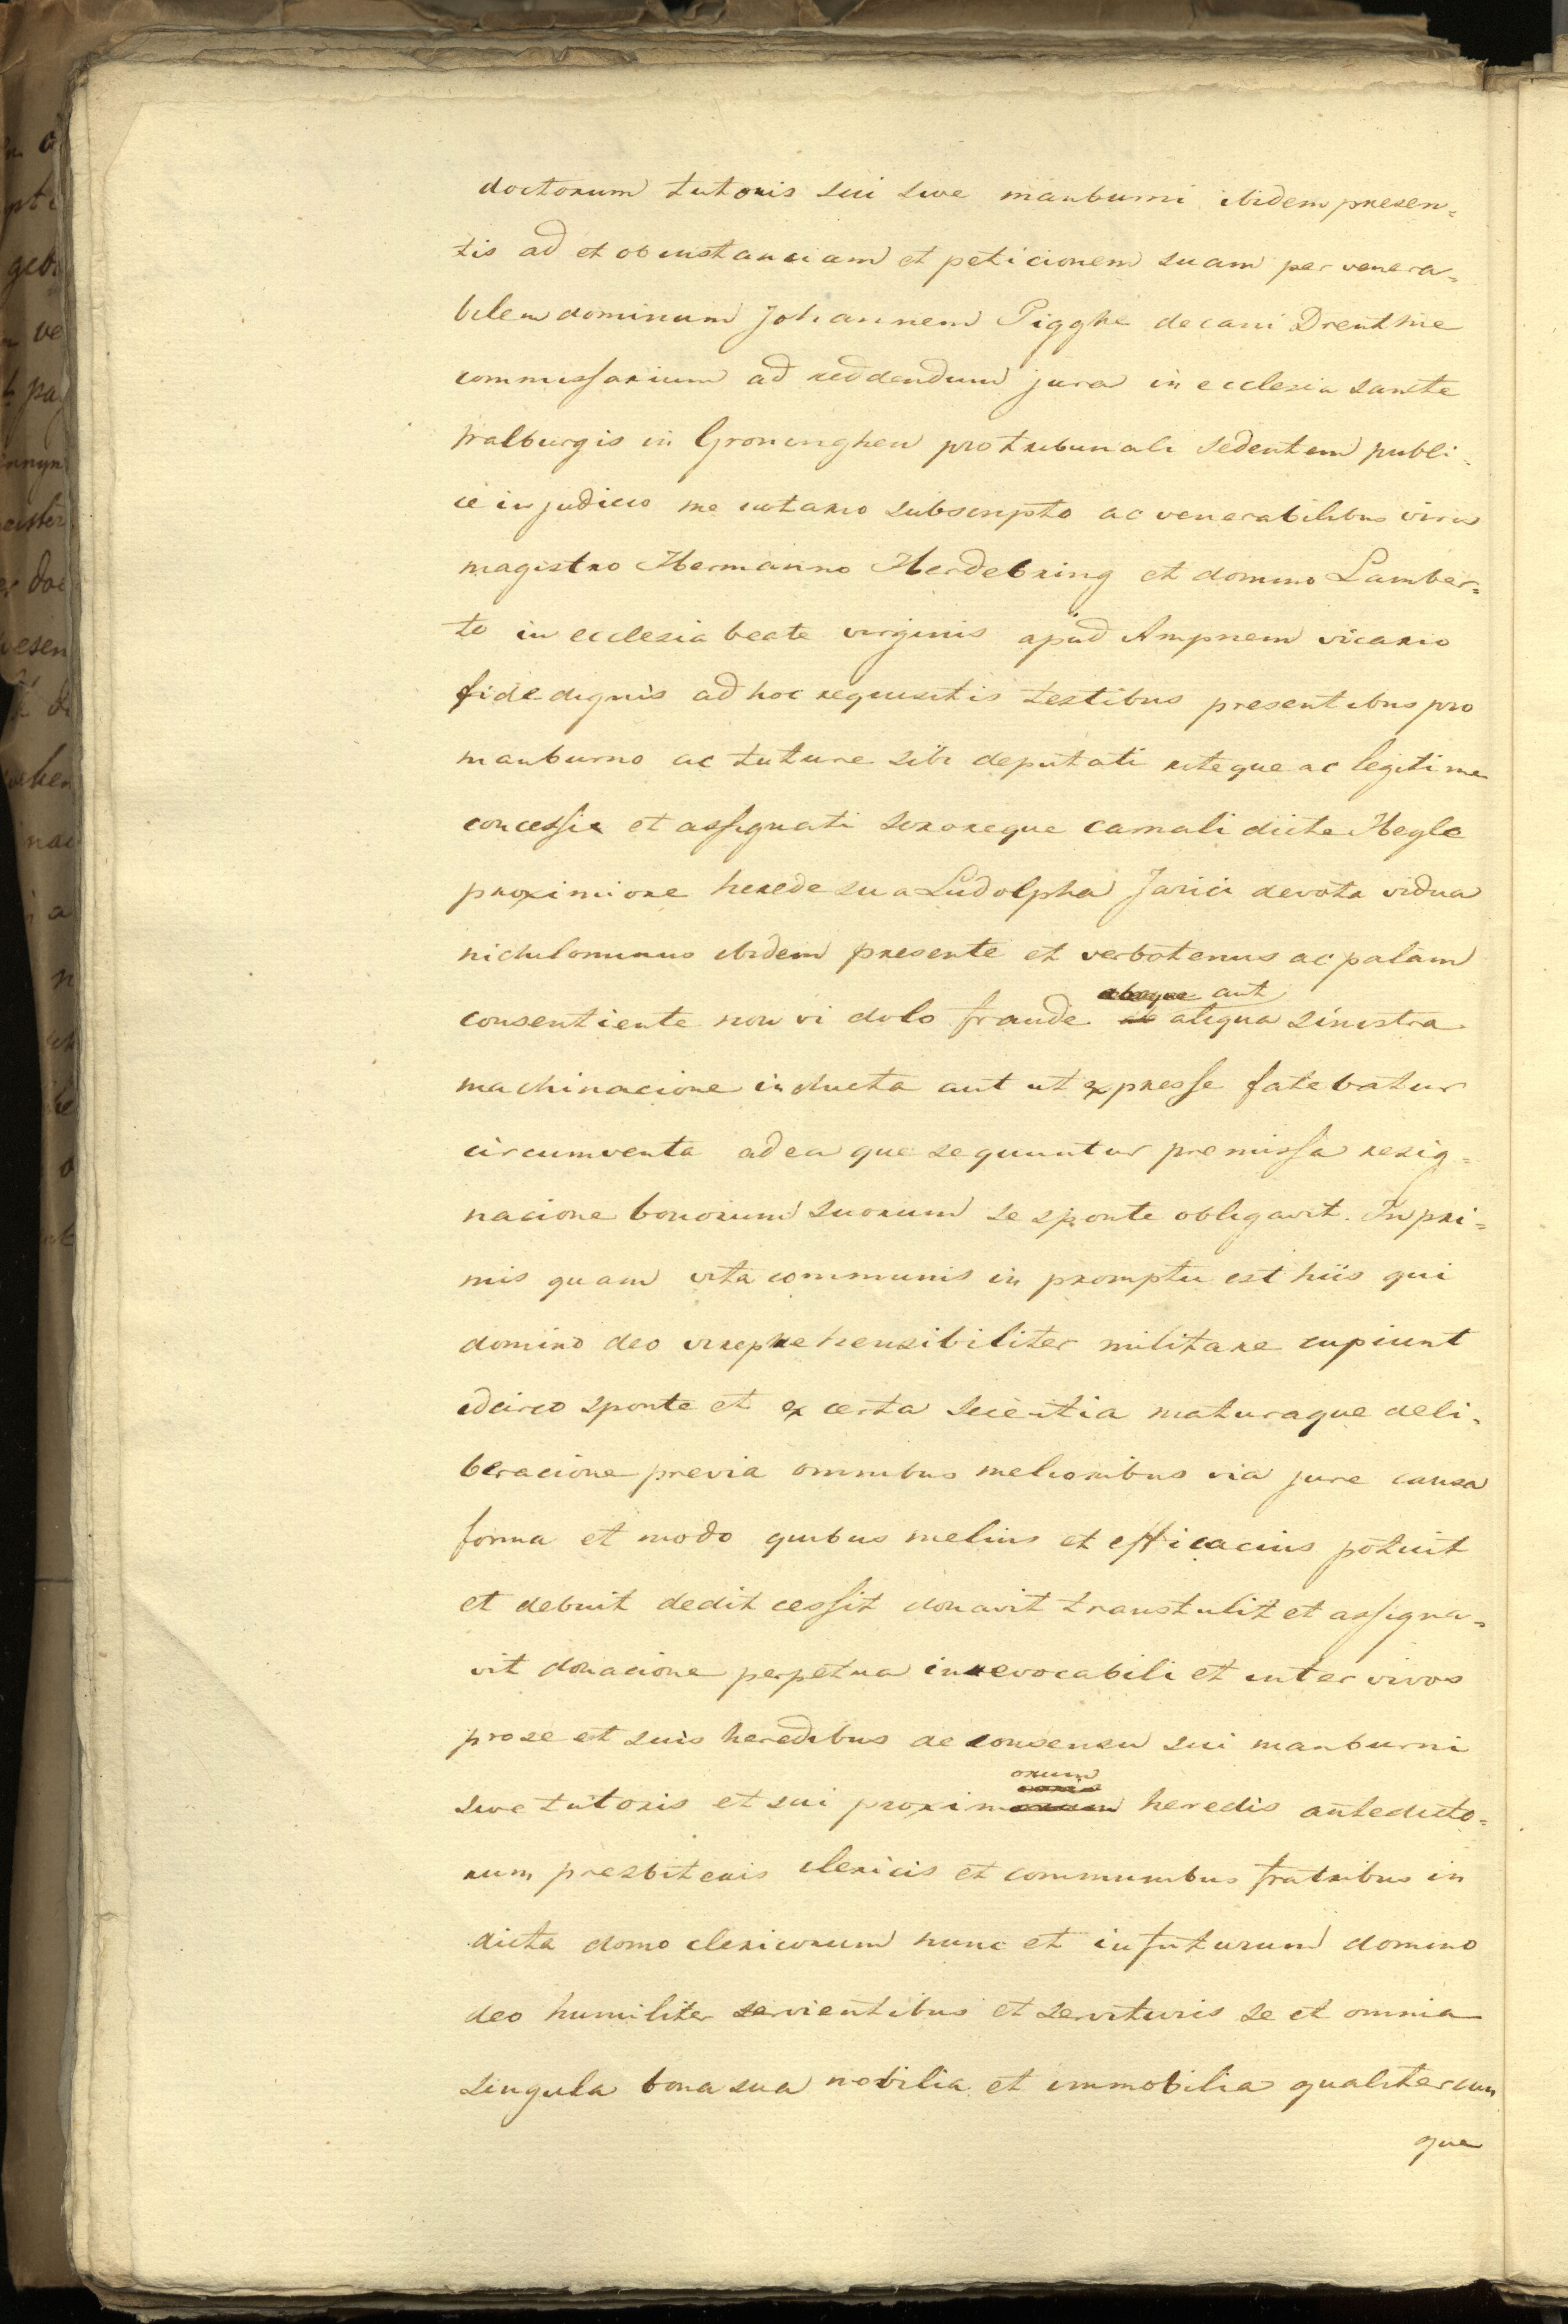 doctorum tutoris sui sive manburni ibidem presen=
tis ad et ob instanciam et peticionem suam per venera=
bilem dominum Johannem Pigghe decani Drenthie
commissarium ad reddendum jura in ecclesia sancte
Walburgis in Groninghen pro tribunali sedentem publi=
ce in judicio me notario subscripto ac venerabilibus viris
magistro Hermanno Herdebring et domino Lamber=
to in ecclesia beate virginis apud Ampnem vicario
fide dignis ad hoc requisitis testibus presentibus pro
manburno ac tutore sibi deputati riteque ac legitime
concessi et assignati sororeque carnali dicte Hegle
proximiore herede sua Ludolpha Jarici devota vidua
nichilominus ibidem presente et verbotenus ac palam
aut
consentiente non vi dolo fraude aliqua sinistra
machinacione inducta aut ut expresse fatebatur
circumventa ad ea que sequuntur premissa resig=
nacione bonorum suorum se sponte obligavit. In pri=
mis quam vita communis in promptu est hiis qui
domino deo irreprehensibiliter militare cupiunt
idcirco sponte et ex certa scientia maturaque deli=
beracione previa omnibus melioribus via jure causa
forma et modo quibus melius et efficacius potuit
et debuit dedit cessit donavit transtulit et assigna=
vit donacione perpetua inrevocabili et inter vivos
pro se et suis heredibus de consensu sui manburni
orum
sive tutoris et sui proxim heredis antedicto=
rum presbiteris clericis et communibus fratribus in
dicta domo clericorum nunc et in futurum domino
deo humiliter servientibus et servituris se et omnia
singula bona sua mobilia et immobilia qualitercun
que